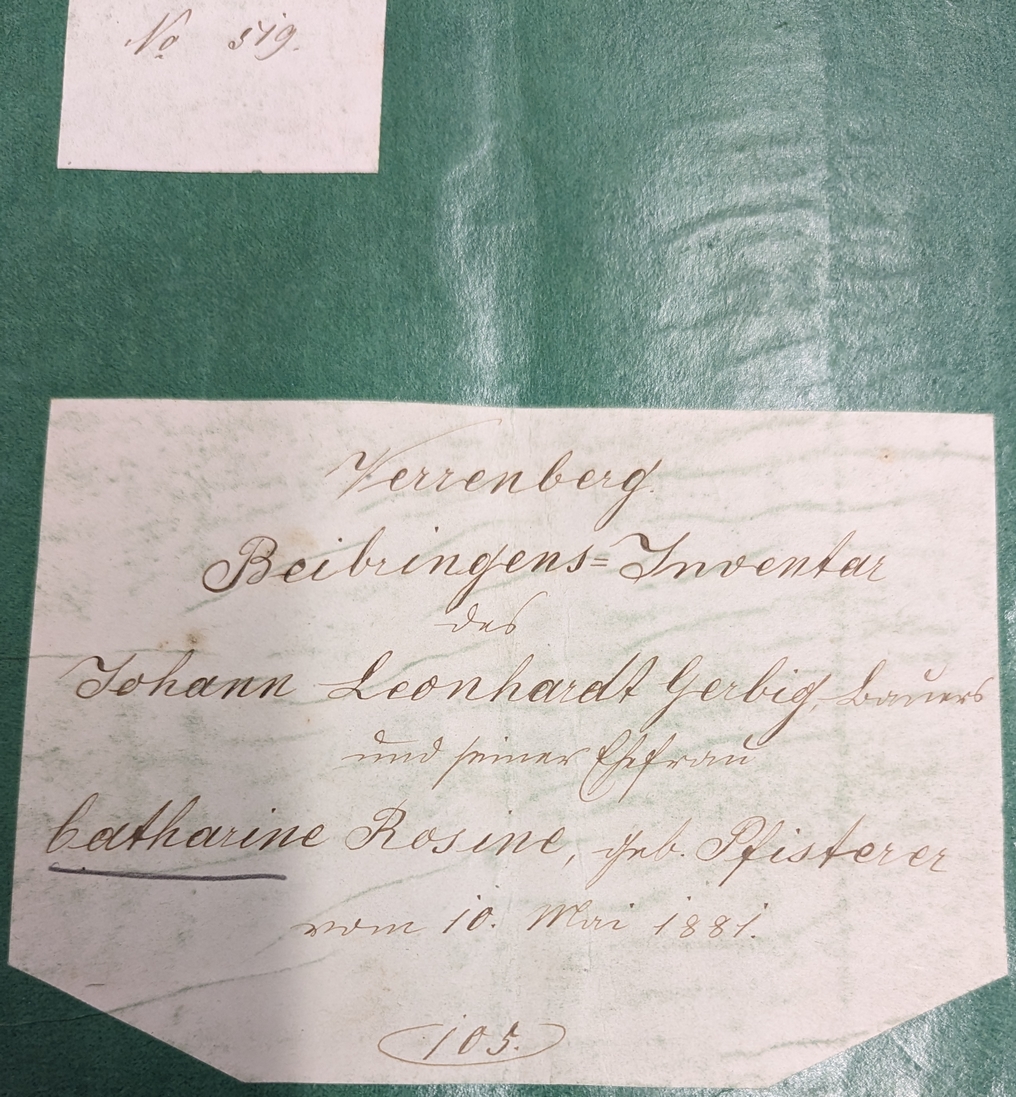 No 519.
Verrenberg.
Beibringens=Inventar
des
Johann Leonhardt Gerbig, Bauers
und seiner Ehefrau
Catharine Rosine, geb. Pfisterer
vom 10. Mai 1881.
105.